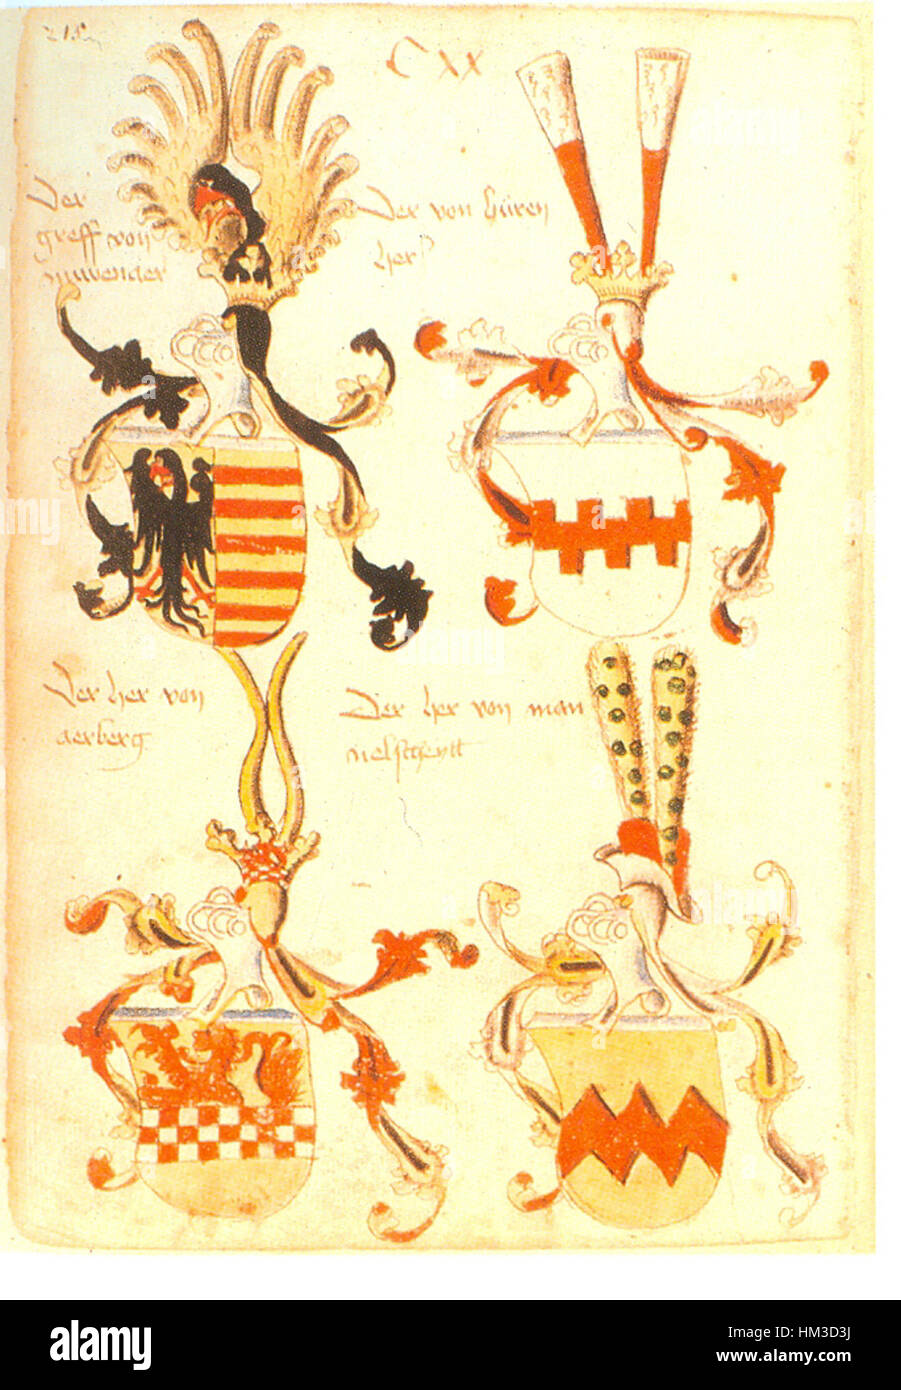 CXX
Der
greff von
nuwender
Der von büren
her
Der her von
aerberg
Der her von man
nelschytt
alamy
Image ID: HM3D3J
www.alamy.com